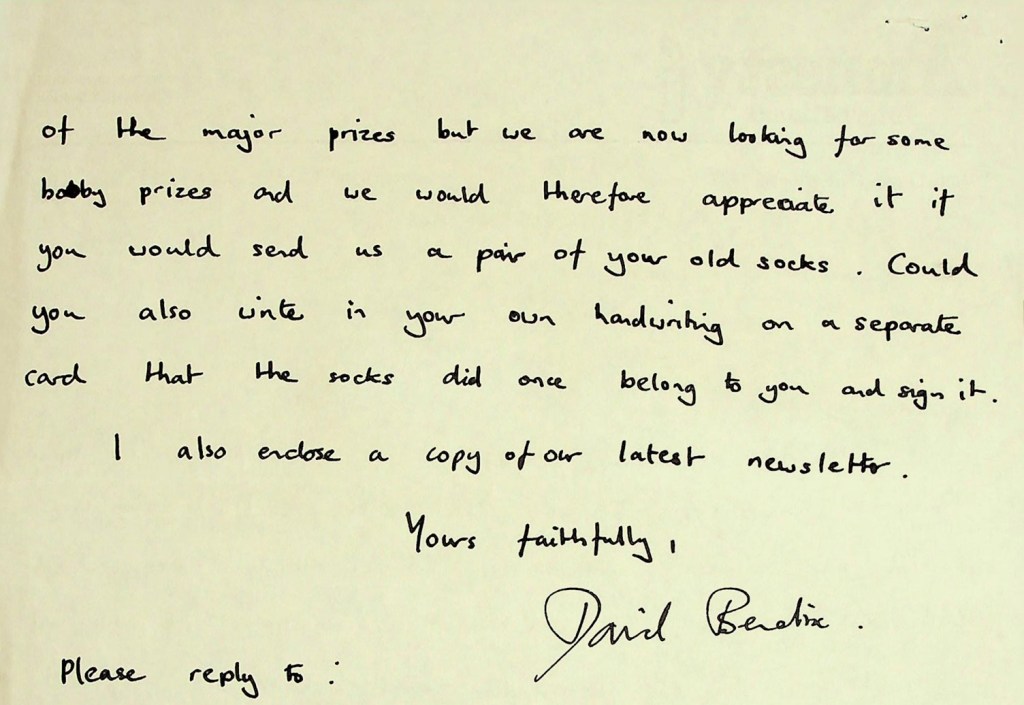 of the major prizes but we are now looking for some
booby prizes and we would therefore appreciate it if
you would send us a pair of your old socks. Could
you also write in your own handwriting on a separate
card that the socks did once belong to you and sign it.
I also enclose a copy of our latest newsletter.
Yours faithfully,
David Bendix.
Please reply to: